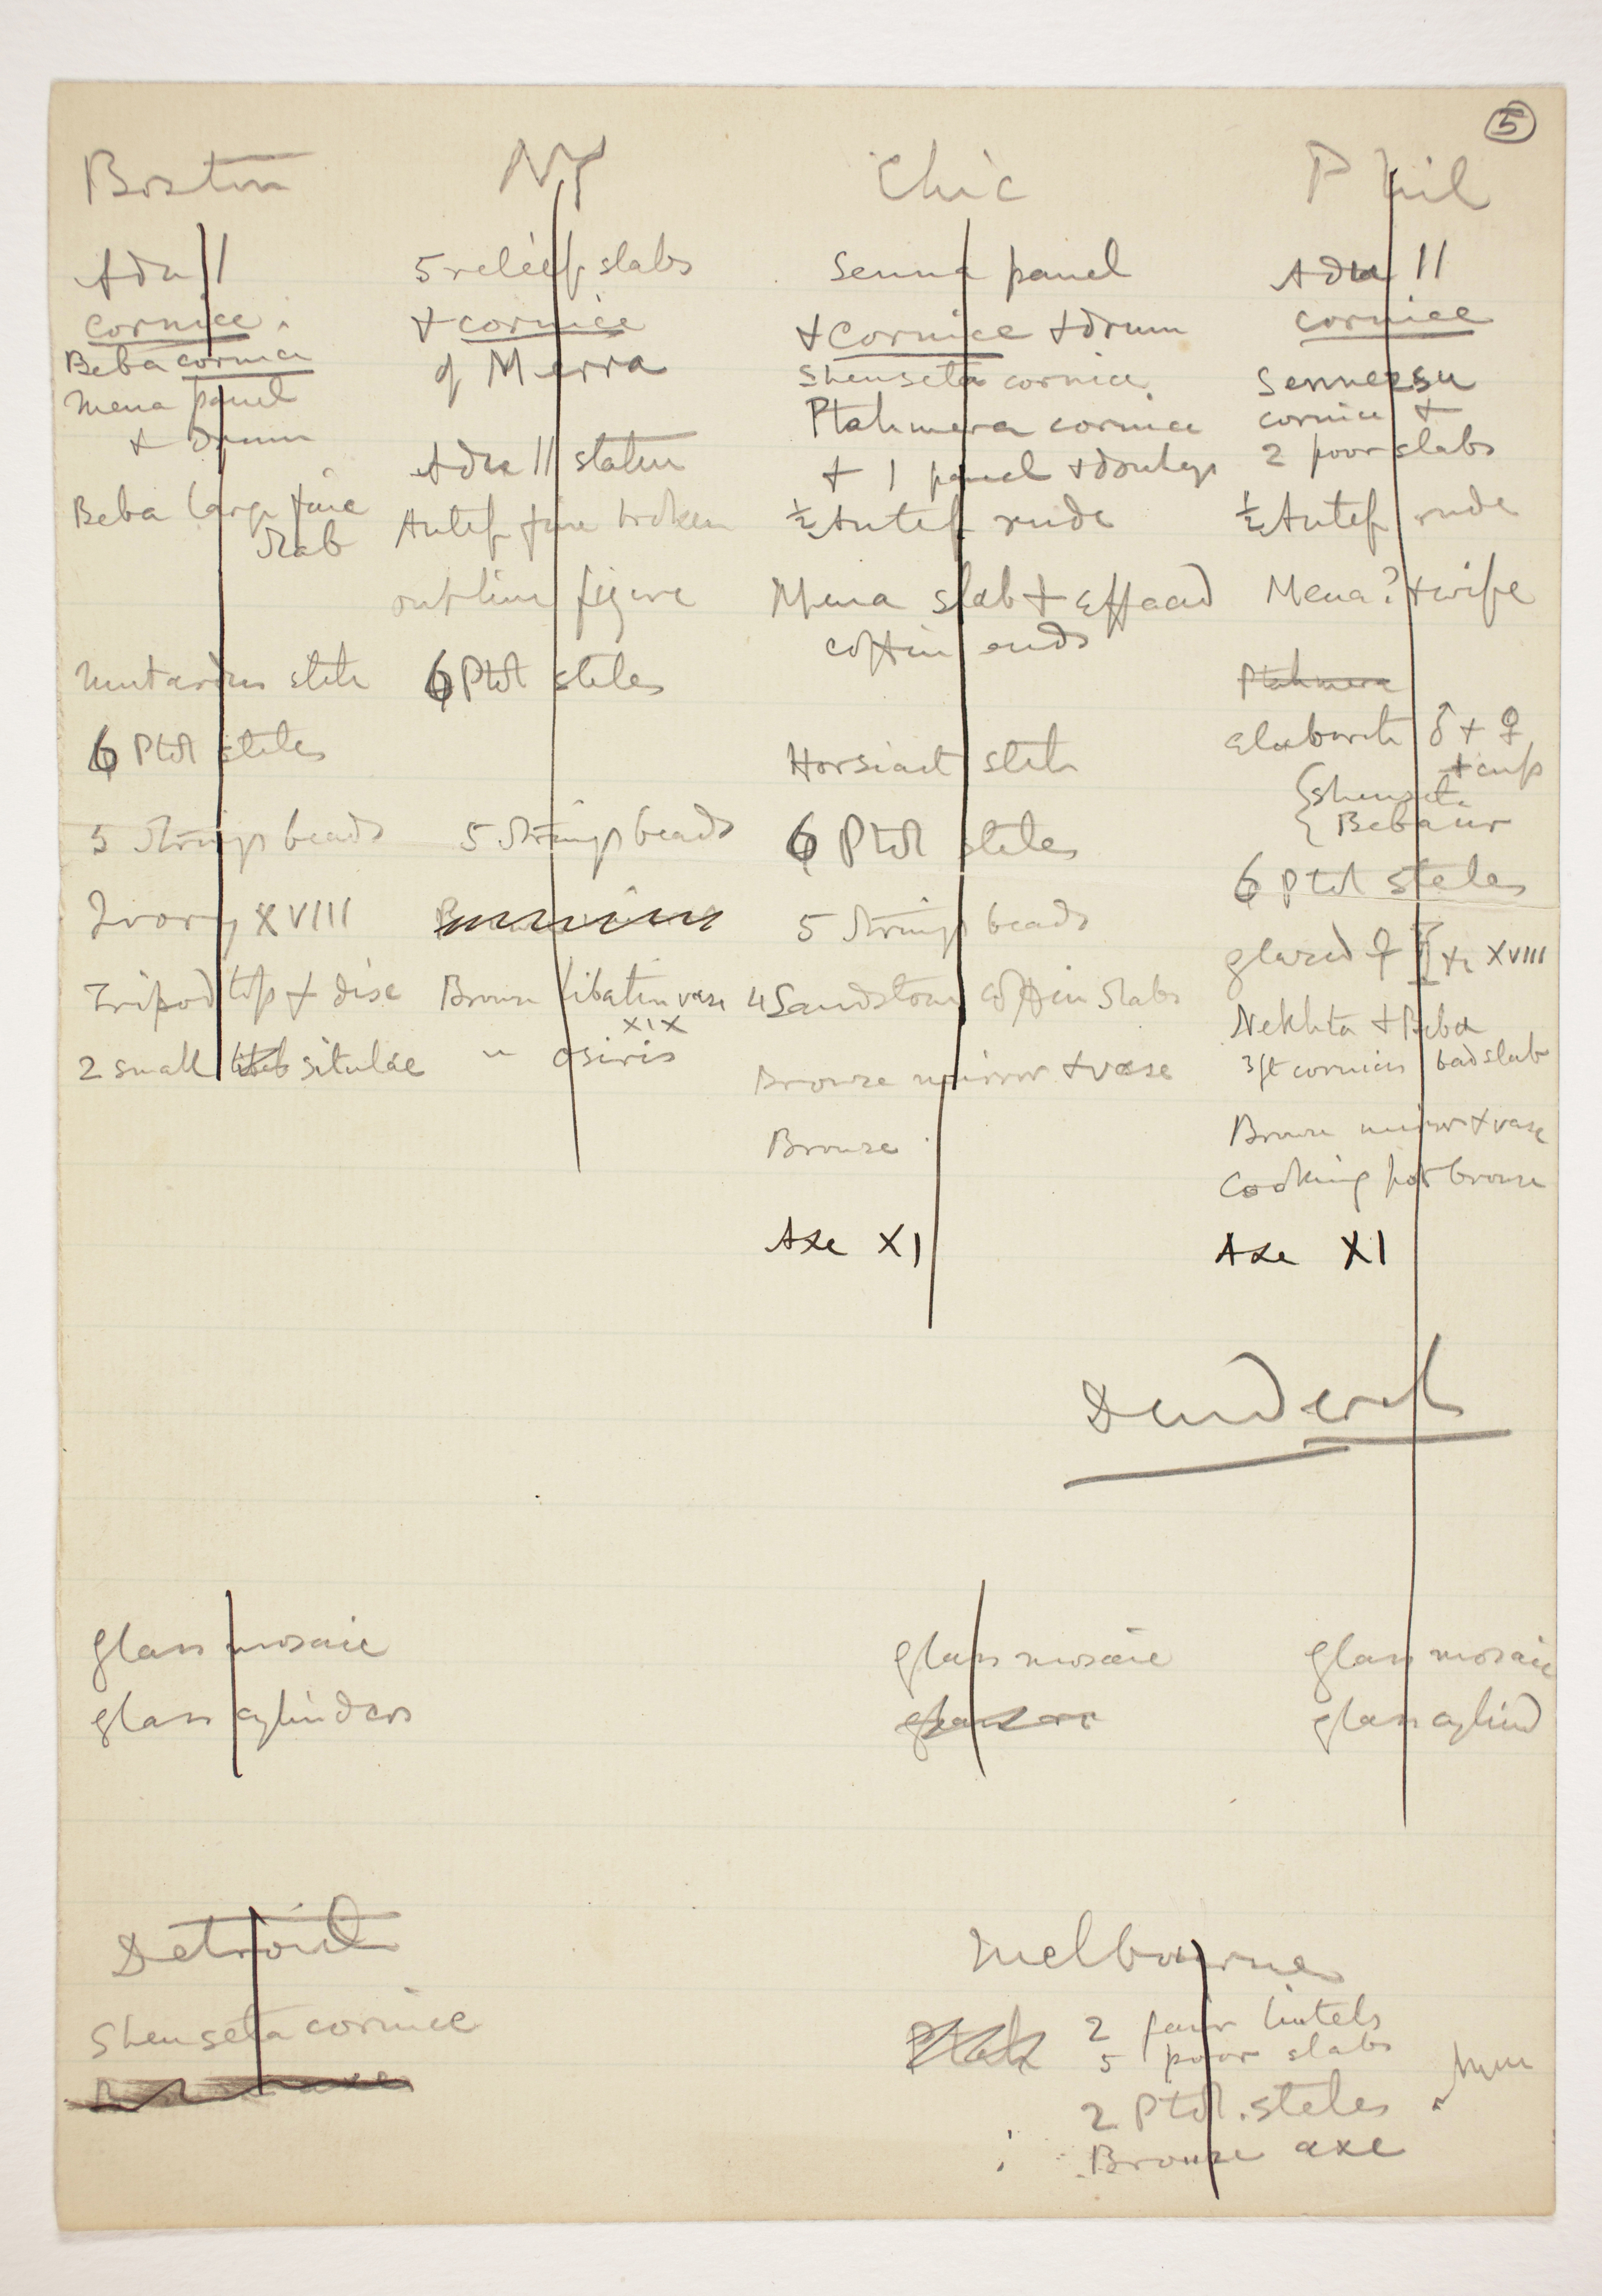 5
Boston
Adu II
cornice.
Beba cornice
Mena panel
+ drum
Beba large fine
slab
stele
6 Ptol steles
5 strings beads
Ivory XVIII
Tripod top + disc
2 small situlae
NY
5 relief slabs
+ cornice
of Merra
Adu II statue
Antef fine broken
outline figure
6 Ptol steles
5 strings beads
Bronze libation vase
XIX
" osiris
Chic
Senna panel
+ cornice + drum
Shenseta cornice
Ptahmera cornice
+ 1 panel +
½ Antef rude
Mena slab + effaced
coffin ends
Horsiast stele
6 Ptol steles
5 strings beads
4 Sandstone coffin slabs
Bronze mirror + vase
Bronze
Axe XI
Phil
Adu II
cornice
Sennezsu
cornice +
2 poor slabs
½ Antef rude
Mena? + wife
Ptahmera
elaborate ♂ + ♀
+ cup
{ Shenseta
{ Bebaur
6 Ptol steles
glazed ♀ XVIII
Nekhta + Beba
3 ft cornices bad slab
Bronze mirror + vase
Cooking pot bronze
Axe XI
Denderah
glass mosaic
glass cylinders
glass mosaic
glass mosaic
glass cylind
Detroit
Shenseta cornice
Melbourne
Ptah
2 fair lintels
5 poor slabs
2 Ptol. steles
Bronze axe